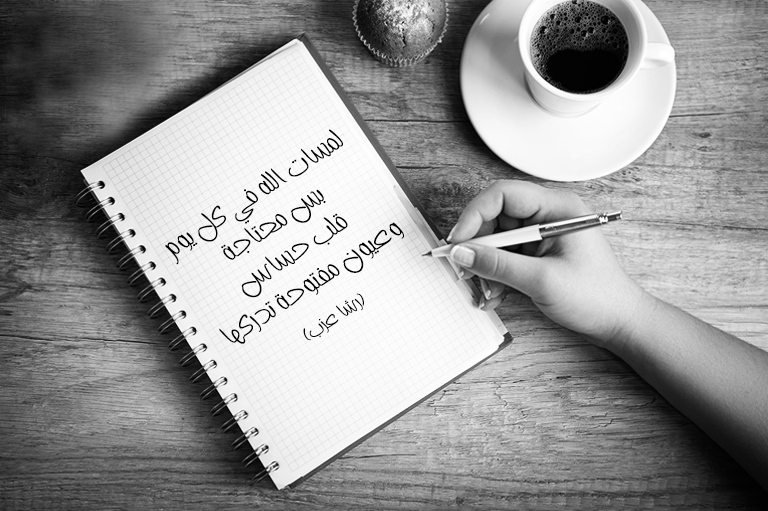 لمسات الله في كل يوم
بس محتاجة
قلب حساس
وعيون مفتوحة تدركها
(رشا عزب)